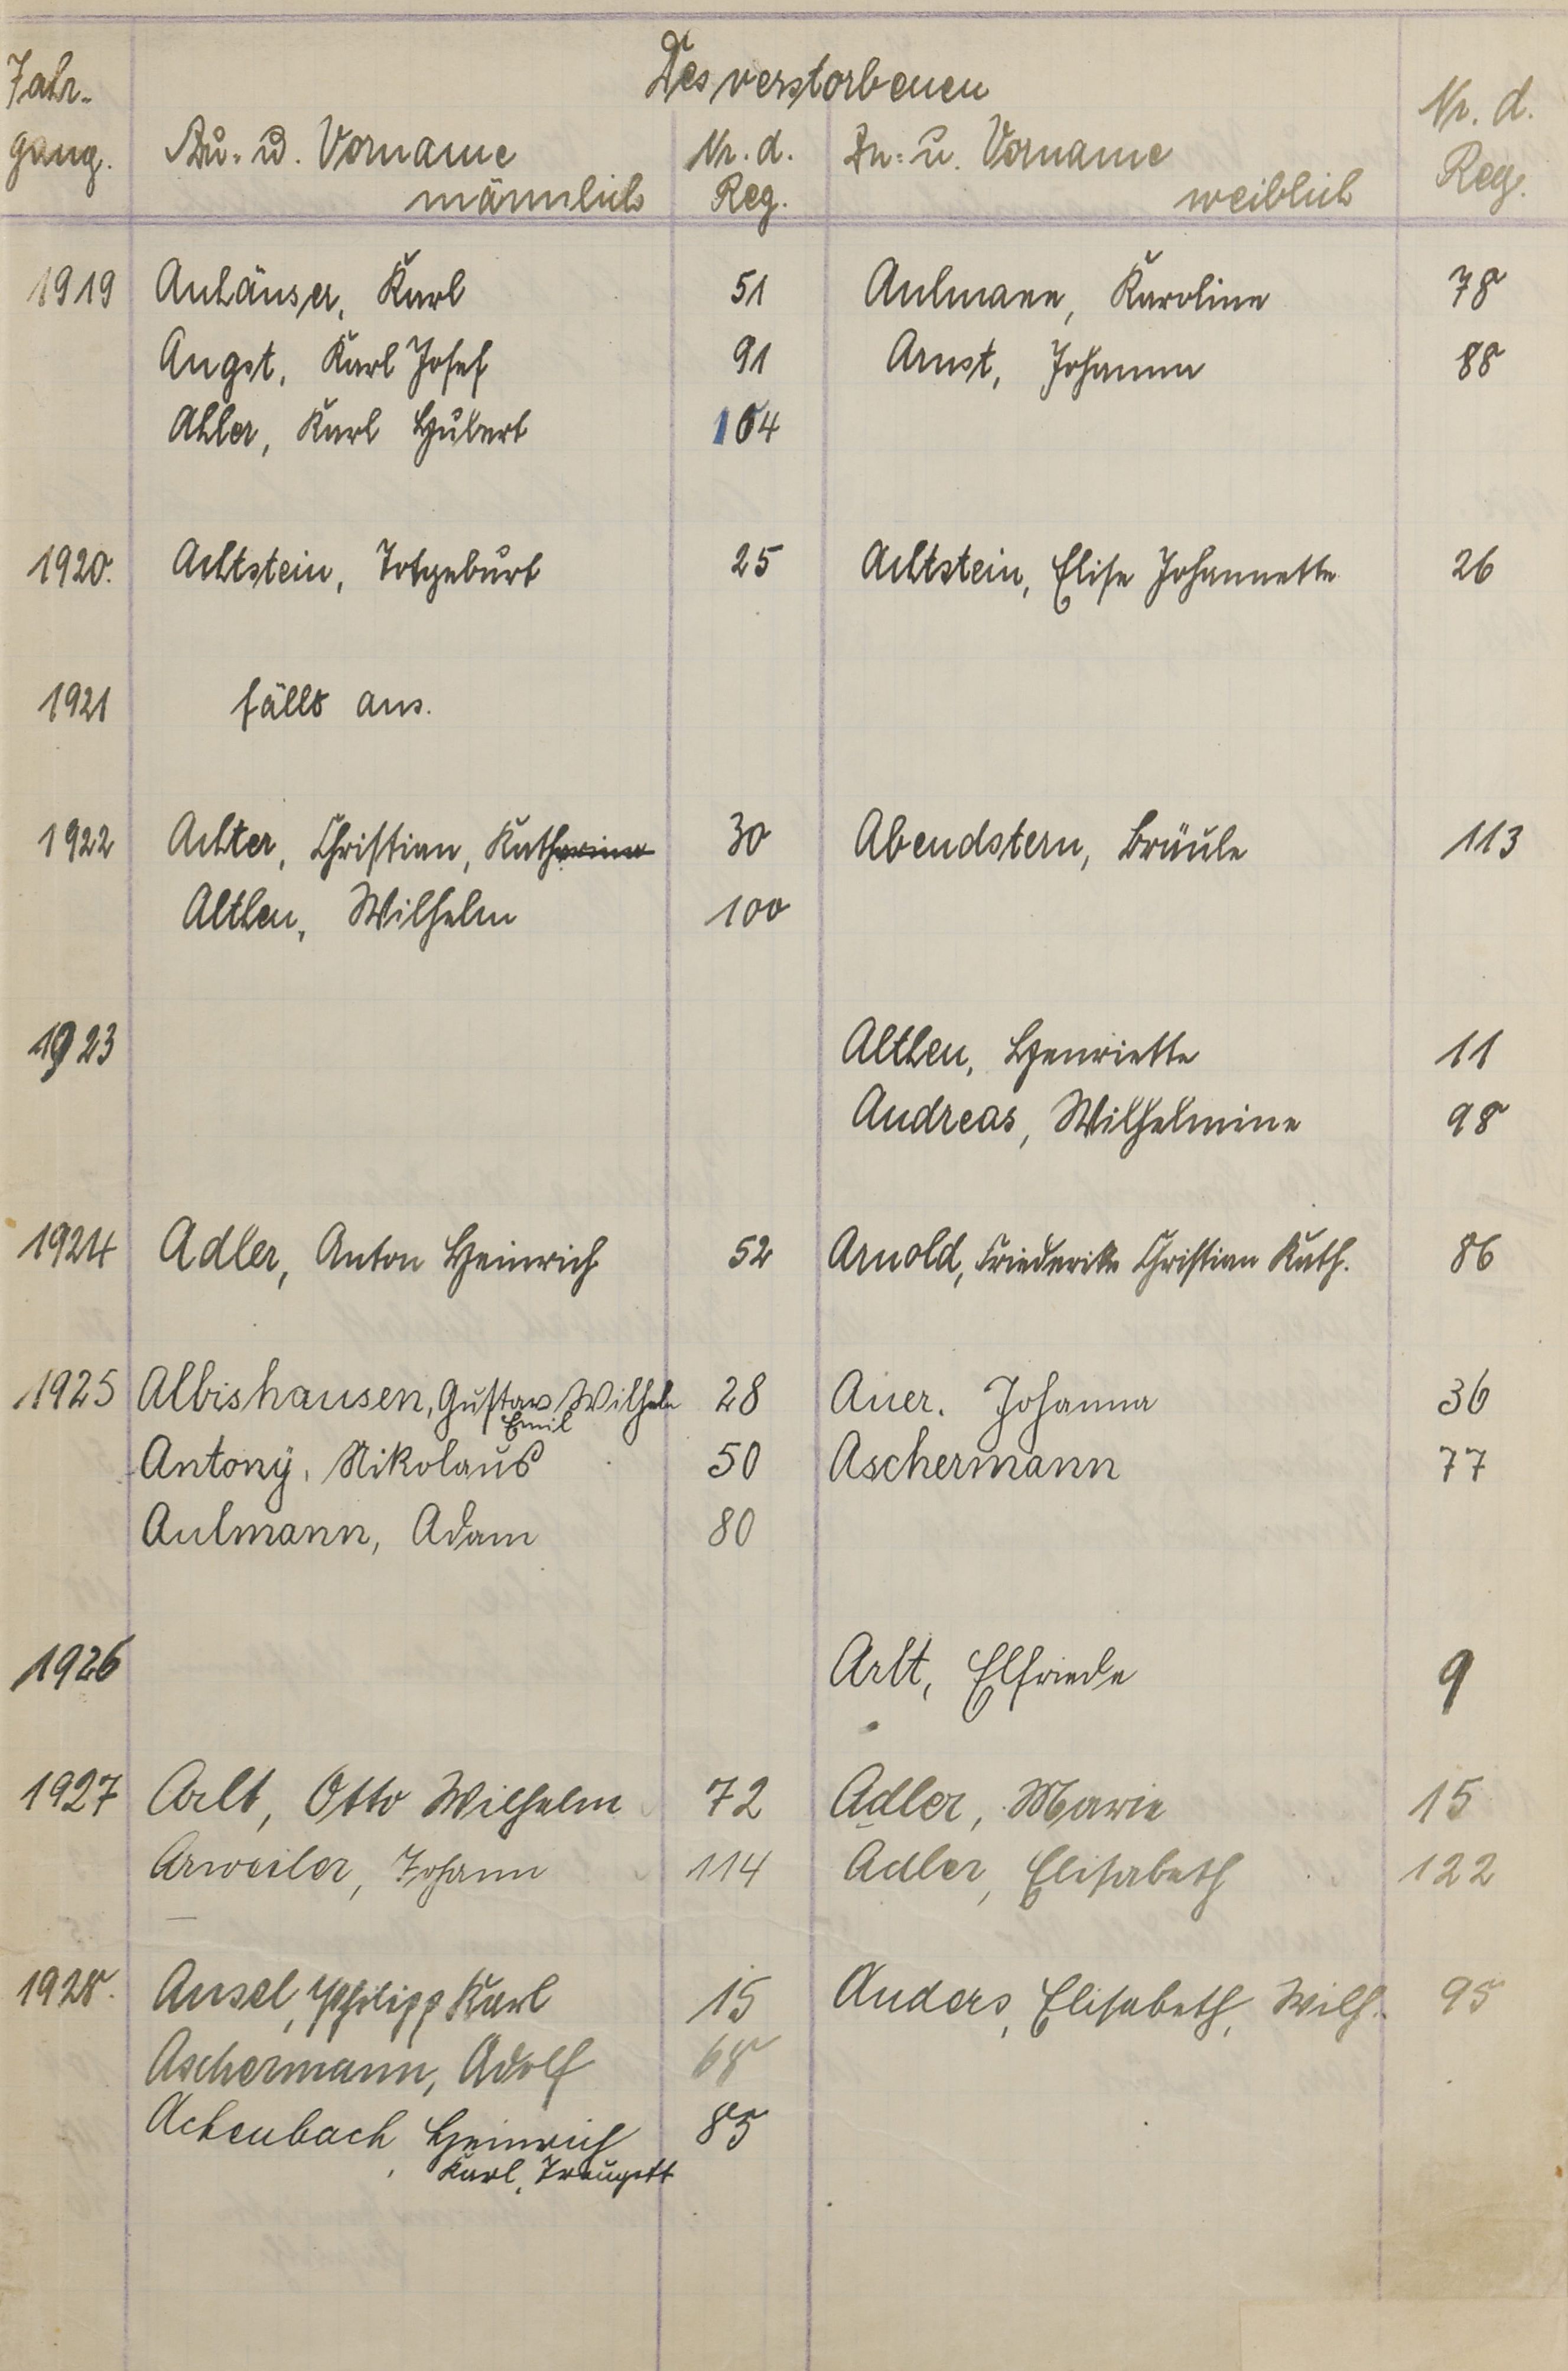 Des verstorbenen
Jahr-
gang. Zu- u. Vorname männlich Nr. d. Reg. Zu- u. Vorname weiblich Nr. d. Reg.
1919 Anhäuser, Karl 51 Aulmann, Karoline 78
Angst, Karl Josef 91 Arnst, Johanna 88
Ahler, Karl Hubert 104
1920. Achtstein, Totgeburt 25 Achtstein, Elise Johannette 26
1921 fällt aus.
1922 Achter, Christian, Katharina 30 Abendstern, 113
Althen, Wilhelm 100
1923 Althen, Henriette 11
Andreas, Wilhelmine 98
1924 Adler, Anton Heinrich 52 Arnold, Friederike Christian Kath. 86
1925 Albishausen, Gustav Wilhelm 28 Auer. Johanna 36
Emil
Antony, Nikolaus 50 Aschermann 77
Aulmann, Adam 80
1926 Arlt, Elfriede 9
1927 Arlt, Otto Wilhelm 72 Adler, Marie 15
Arweiler, Johann 114 Adler, Elisabeth 122
1928. Ansel, Philipp Karl 15 Anders, Elisabeth, Wilh. 95
Aschermann, Adolf 68
Achenbach Heinrich 85
Karl, Traugott